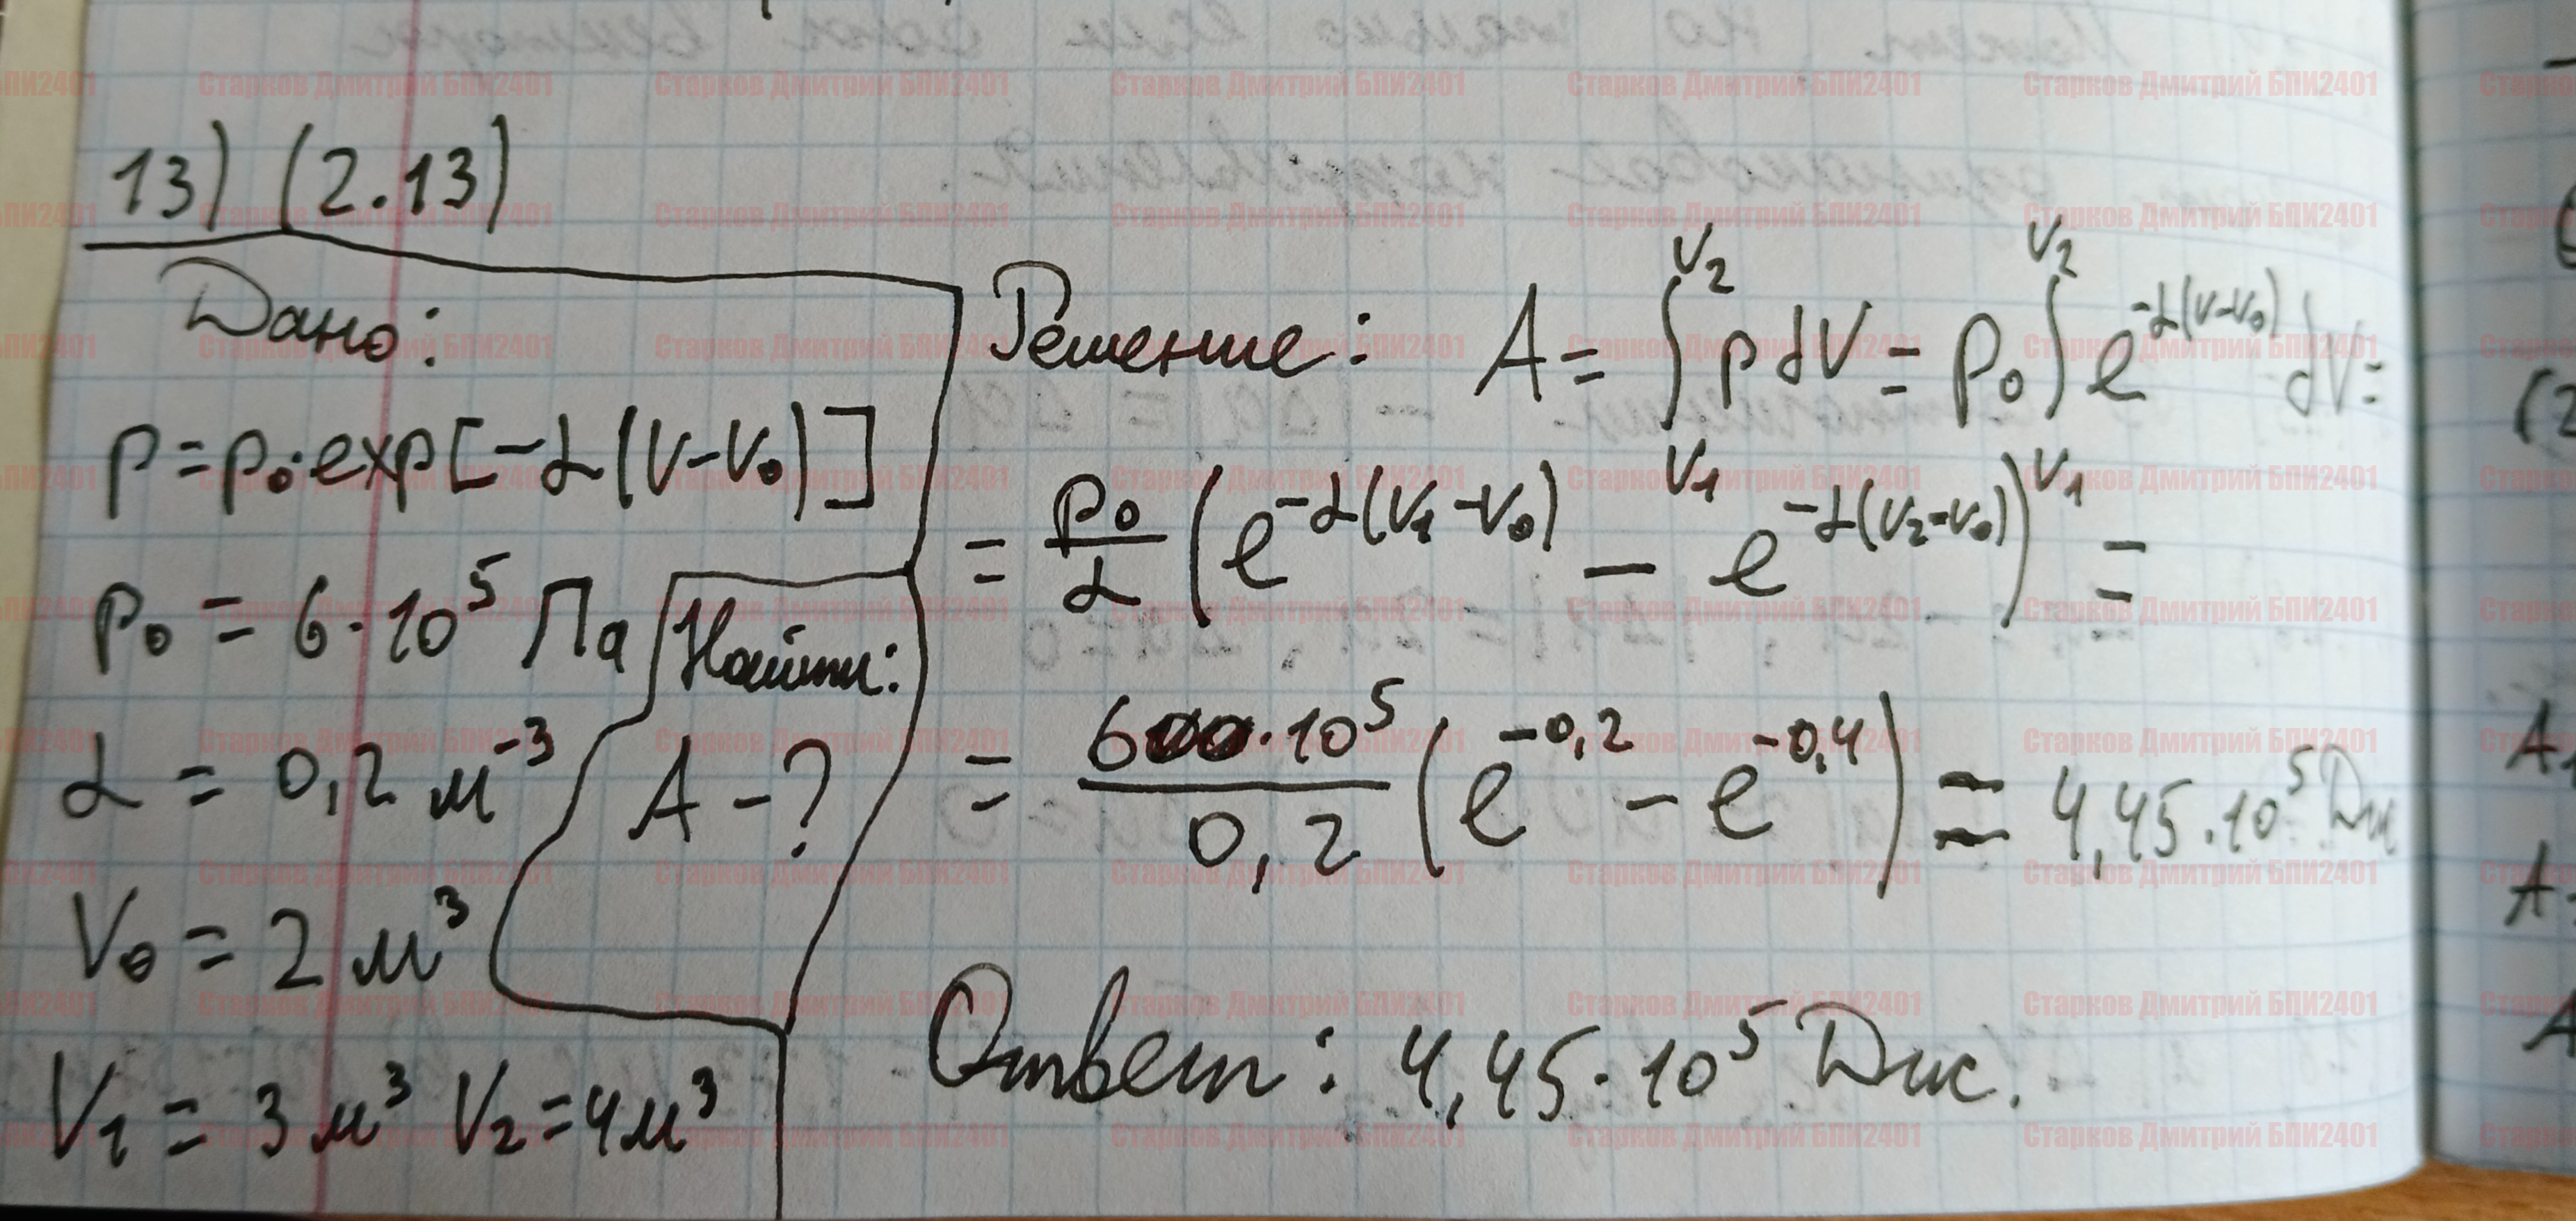 13) (2.13)
Дано:
p=p₀·exp[-α(V-V₀)]
p₀ = 6·10⁵ Па
α = 0,2 м⁻³
V₀ = 2 м³
V₁ = 3 м³ V₂=4м³
Найти:
A-?
Решение: A = ∫_{V₁}^{V₂} p dV = p₀ ∫_{V₁}^{V₂} e^{-α(V-V₀)} dV =
= p₀/α (e^{-α(V₁-V₀)} - e^{-α(V₂-V₀)}) =
= 6·10⁵/0,2 (e^{-0,2} - e^{-0,4}) = 4,45·10⁵ Дж
Ответ: 4,45·10⁵ Дж.
Старков Дмитрий БПИ2401